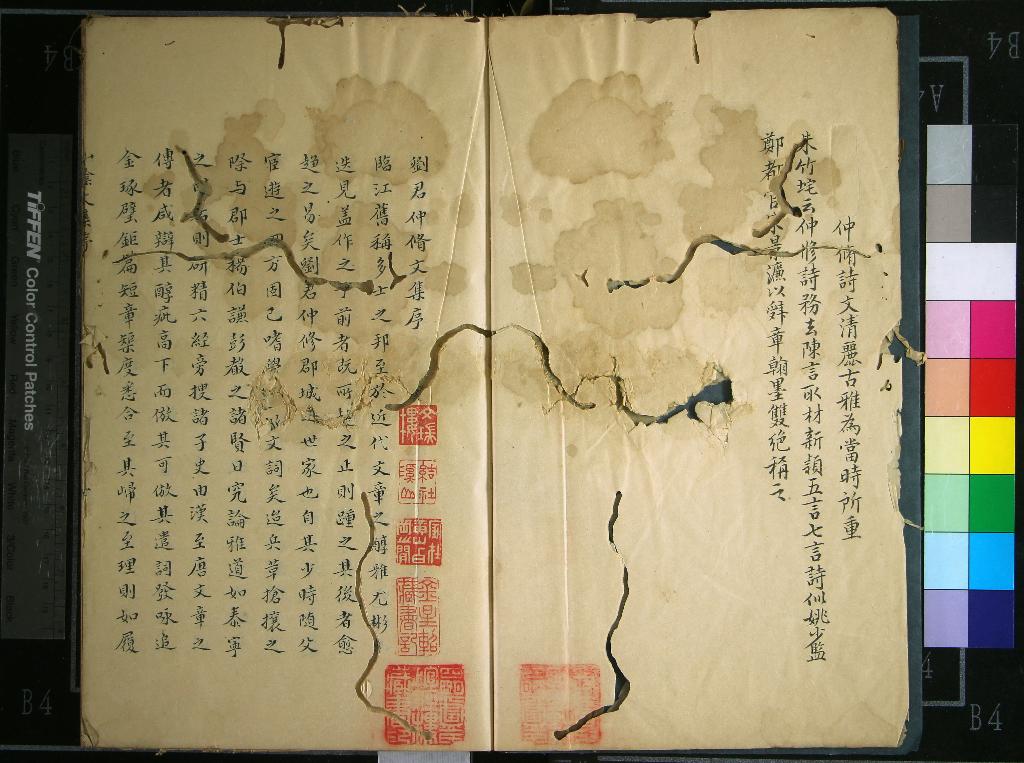 仲脩詩文清麗古雅為當時所重
朱竹垞云仲修詩務去陳言取材新穎五言七言詩似姚少監
鄭都景濂以辭章翰墨雙絶稱之
劉君仲脩文集序
臨江舊稱多士之邦至於近代文章之醇雅尤彬
迭見盖作之于前者既所趨之止則踵之其後者愈
趨之易矣劉君仲修郡城世家也自其少時随父
宦遊之四方固已嗜學文詞矣迨兵草搶攘之
際与郡士楊伯謙彭聲之諸賢日究論雅道如泰寧
之則研精六經旁搜諸子史由漢至唐文章之
傳者咸辯其醇疵高下而倣其可倣其遣詞發咏追
金琢璧鉅篇短章榘度悉合至其歸之至理則如履
結社溪山
家在黃山白岳之間
金星軺藏書記
TIFFEN Color Control Patches
B4
B4
B4
B4
A4